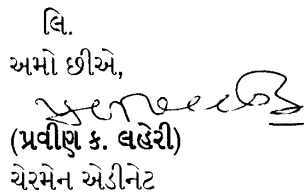 લિ.
અમો છીએ,
(પ્રવીણ ક. લહેરી)
ચેરમેન એડીનેટ